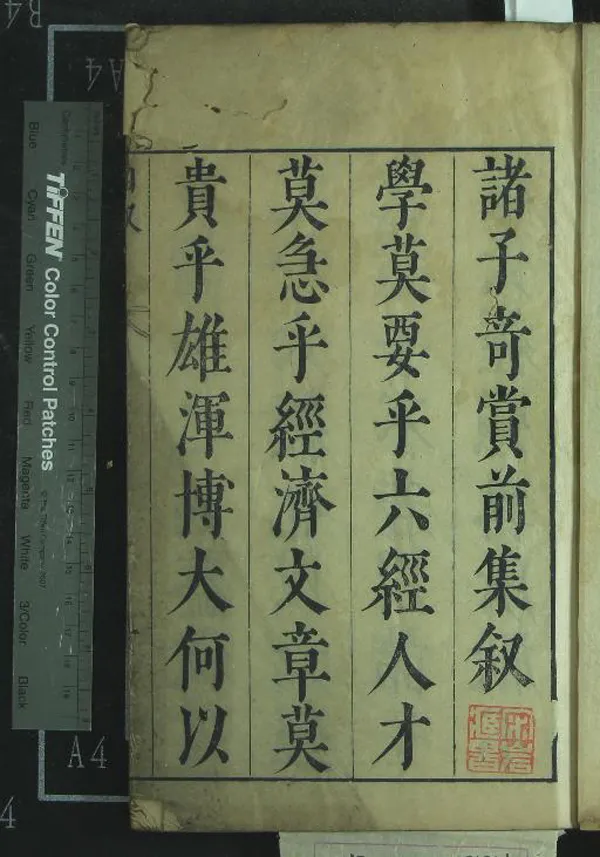 諸子奇賞前集叙
學莫要乎六經人才
莫急乎經濟文章莫
貴乎雄渾博大何以
TIFFEN Color Control Patches
© The Tiffen Company, 2007
Centimetres
Blue
Cyan
Green
Yellow
Red
Magenta
White
3/Color
Black
A4
A4
A4
B4